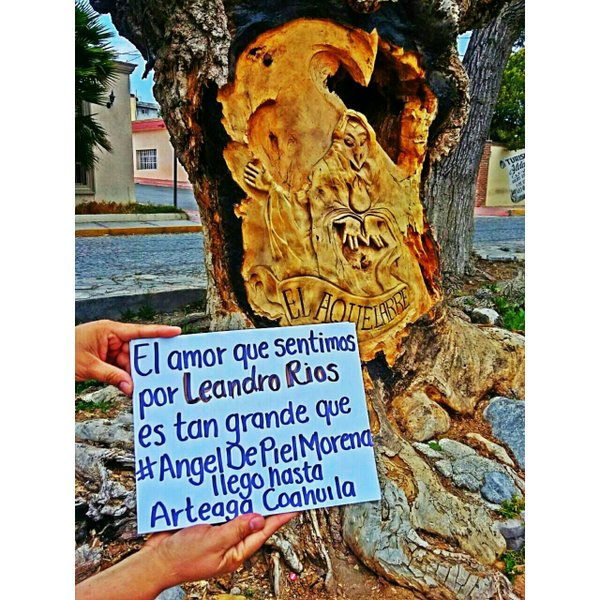 EL AQUELARRE
El amor que sentimos
por Leandro Rios
es tan grande que
#AngelDePielMorena
llego hasta
Arteaga Coahuila